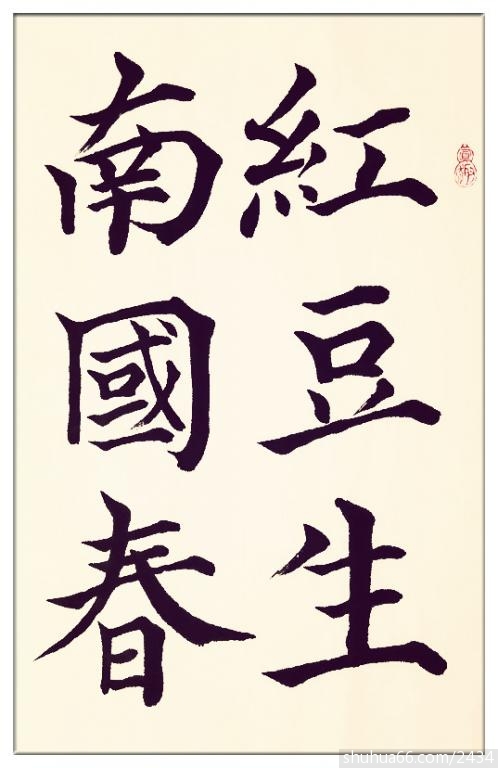 紅豆生
南國春
shuhua66.com/2434